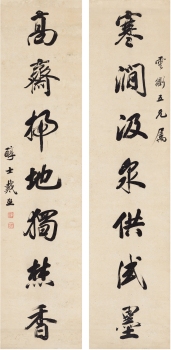 雲衢五兄屬
寒澗汲泉供試墨
高齋掃地獨焚香
醇士戴熙